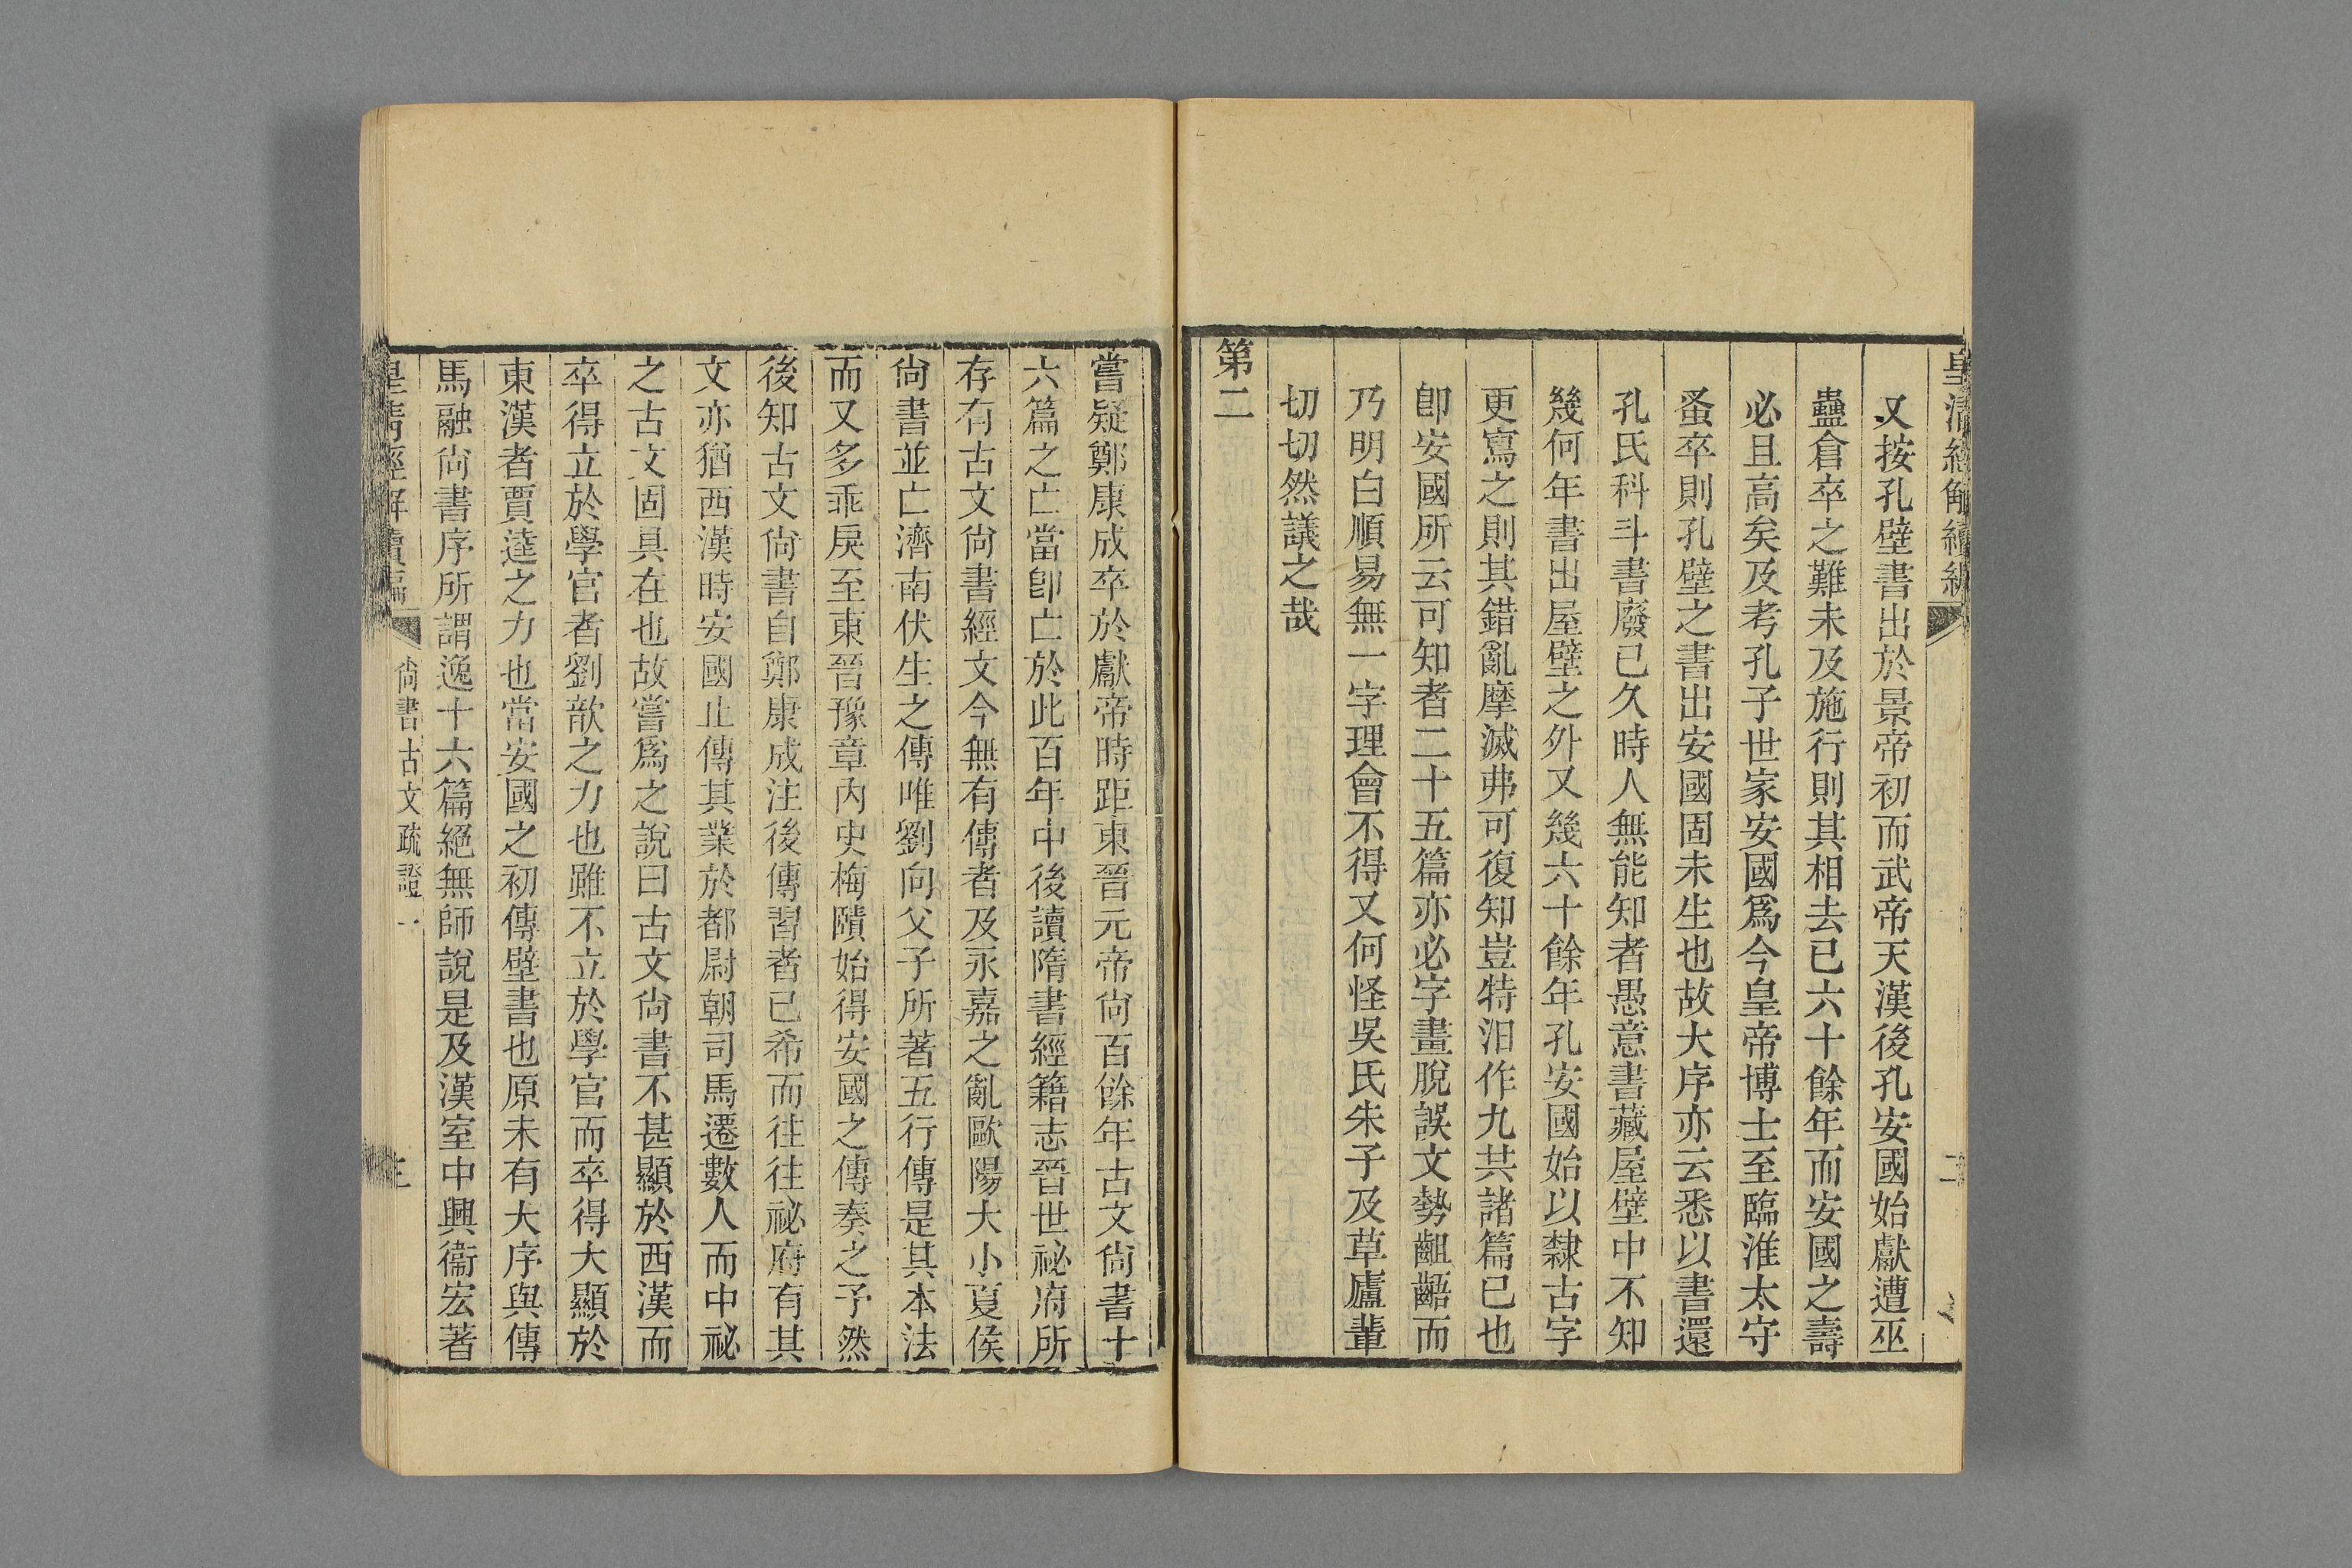 皇清經解續編 二
又按孔壁書出於景帝初而武帝天漢後孔安國始獻遭巫
蠱倉卒之難未及施行則其相去已六十餘年而安國之壽
必且高矣及考孔子世家安國爲今皇帝博士至臨淮太守
蚤卒則孔壁之書出安國固未生也故大序亦云悉以書還
孔氏科斗書廢已久時人無能知者愚意書藏屋壁中不知
幾何年書出屋壁之外又幾六十餘年孔安國始以隸古字
更寫之則其錯亂摩滅弗可復知豈特汨作九共諸篇已也
卽安國所云可知者二十五篇亦必字畫脫誤文勢齟齬而
乃明白順易無一字理會不得又何怪吳氏朱子及草廬輩
切切然議之哉
第二
嘗疑鄭康成卒於獻帝時距東晉元帝尙百餘年古文尙書十
六篇之亡當卽亡於此百年中後讀隋書經籍志晉世祕府所
存有古文尙書經文今無有傳者及永嘉之亂歐陽大小夏侯
尙書並亡濟南伏生之傳唯劉向父子所著五行傳是其本法
而又多乖戾至東晉豫章內史梅賾始得安國之傳奏之予然
後知古文尙書自鄭康成注後傳習者已希而往往祕府有其
文亦猶西漢時安國止傳其業於都尉朝司馬遷數人而中祕
之古文固具在也故嘗爲之說曰古文尙書不甚顯於西漢而
卒得立於學官者劉歆之力也雖不立於學官而卒得大顯於
東漢者賈逵之力也當安國之初傳壁書也原未有大序與傳
馬融尙書序所謂逸十六篇絕無師說是及漢室中興衞宏著
皇清經解續編 尙書古文疏證一 三